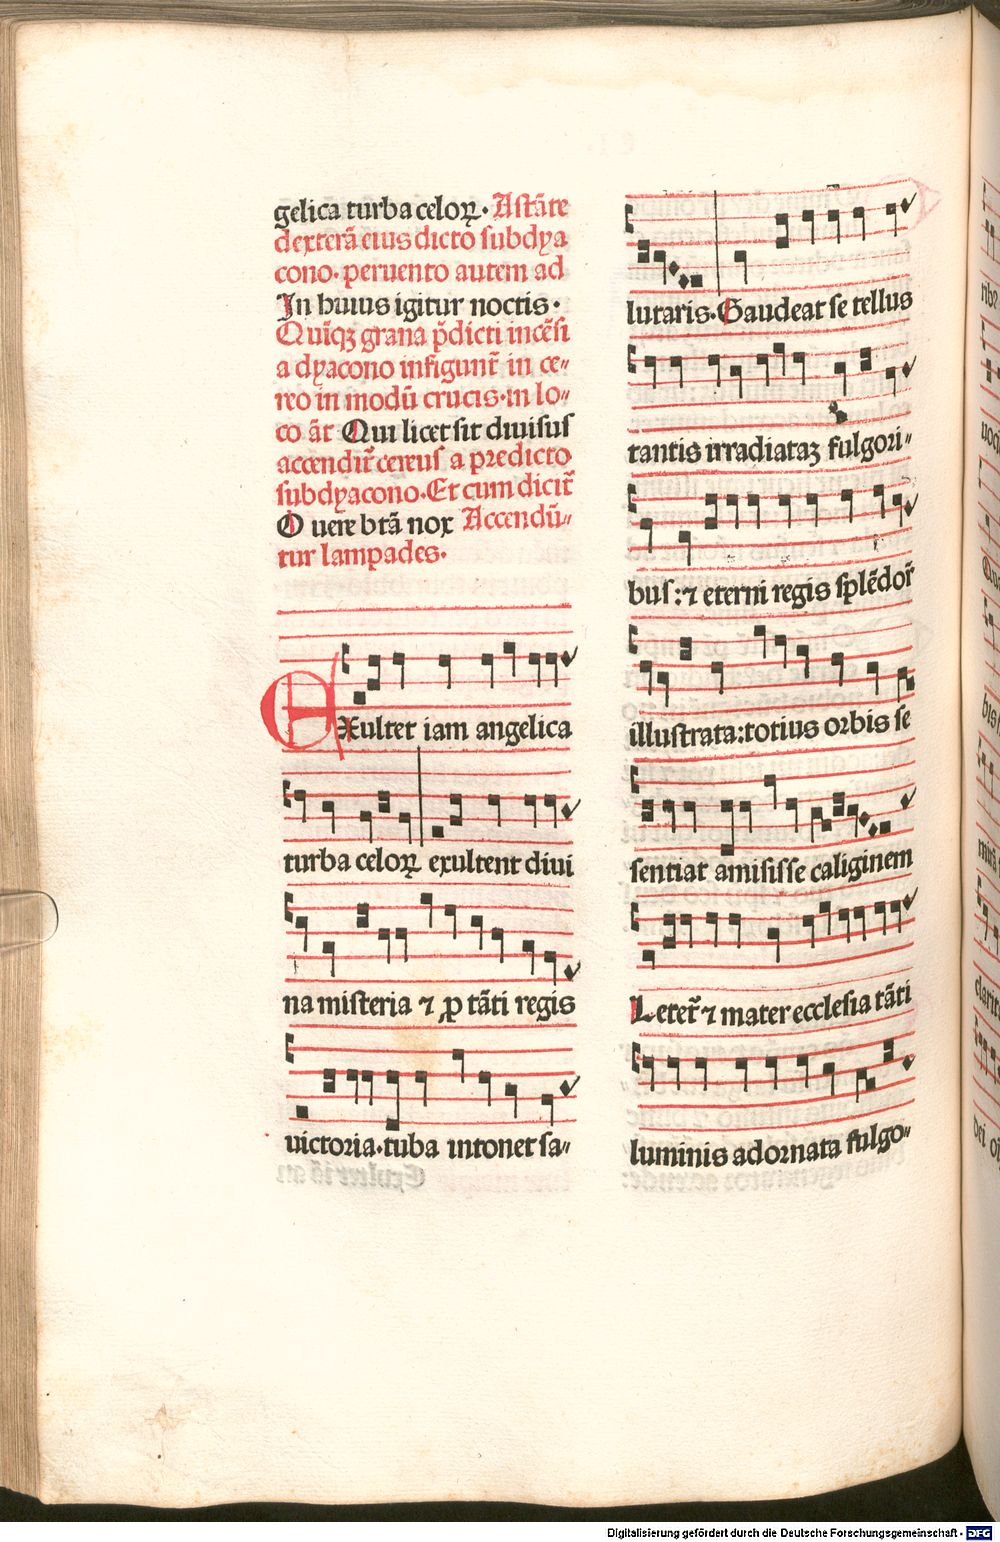 gelica turba celoꝝ. Astāte
dexterā eius dicto subdya
cono. peruento autem ad
In huius igitur noctis.
Quīqꝫ grana p̄dicti incēsi
a dyacono infigunt᷑ in ce⸗
reo in modū crucis. in lo⸗
co āt Qui licet sit diuisus
accendit᷑ cereus a predicto
subdyacono. Et cum dicit᷑
O uere btā nox Accendū⸗
tur lampades.
EXultet iam angelica
turba celoꝝ exultent diui
na misteria ⁊ ꝓ tāti regis
victoria. tuba intonet sa⸗
lutaris. Gaudeat se tellus
tantis irradiataꝫ fulgori⸗
bus: ⁊ eterni regis splēdor᷑
illustrata: totius orbis se
sentiat amisisse caliginem
Letet᷑ ⁊ mater ecclesia tāti
luminis adornata fulgo⸗
Digitalisierung gefördert durch die Deutsche Forschungsgemeinschaft - DFG